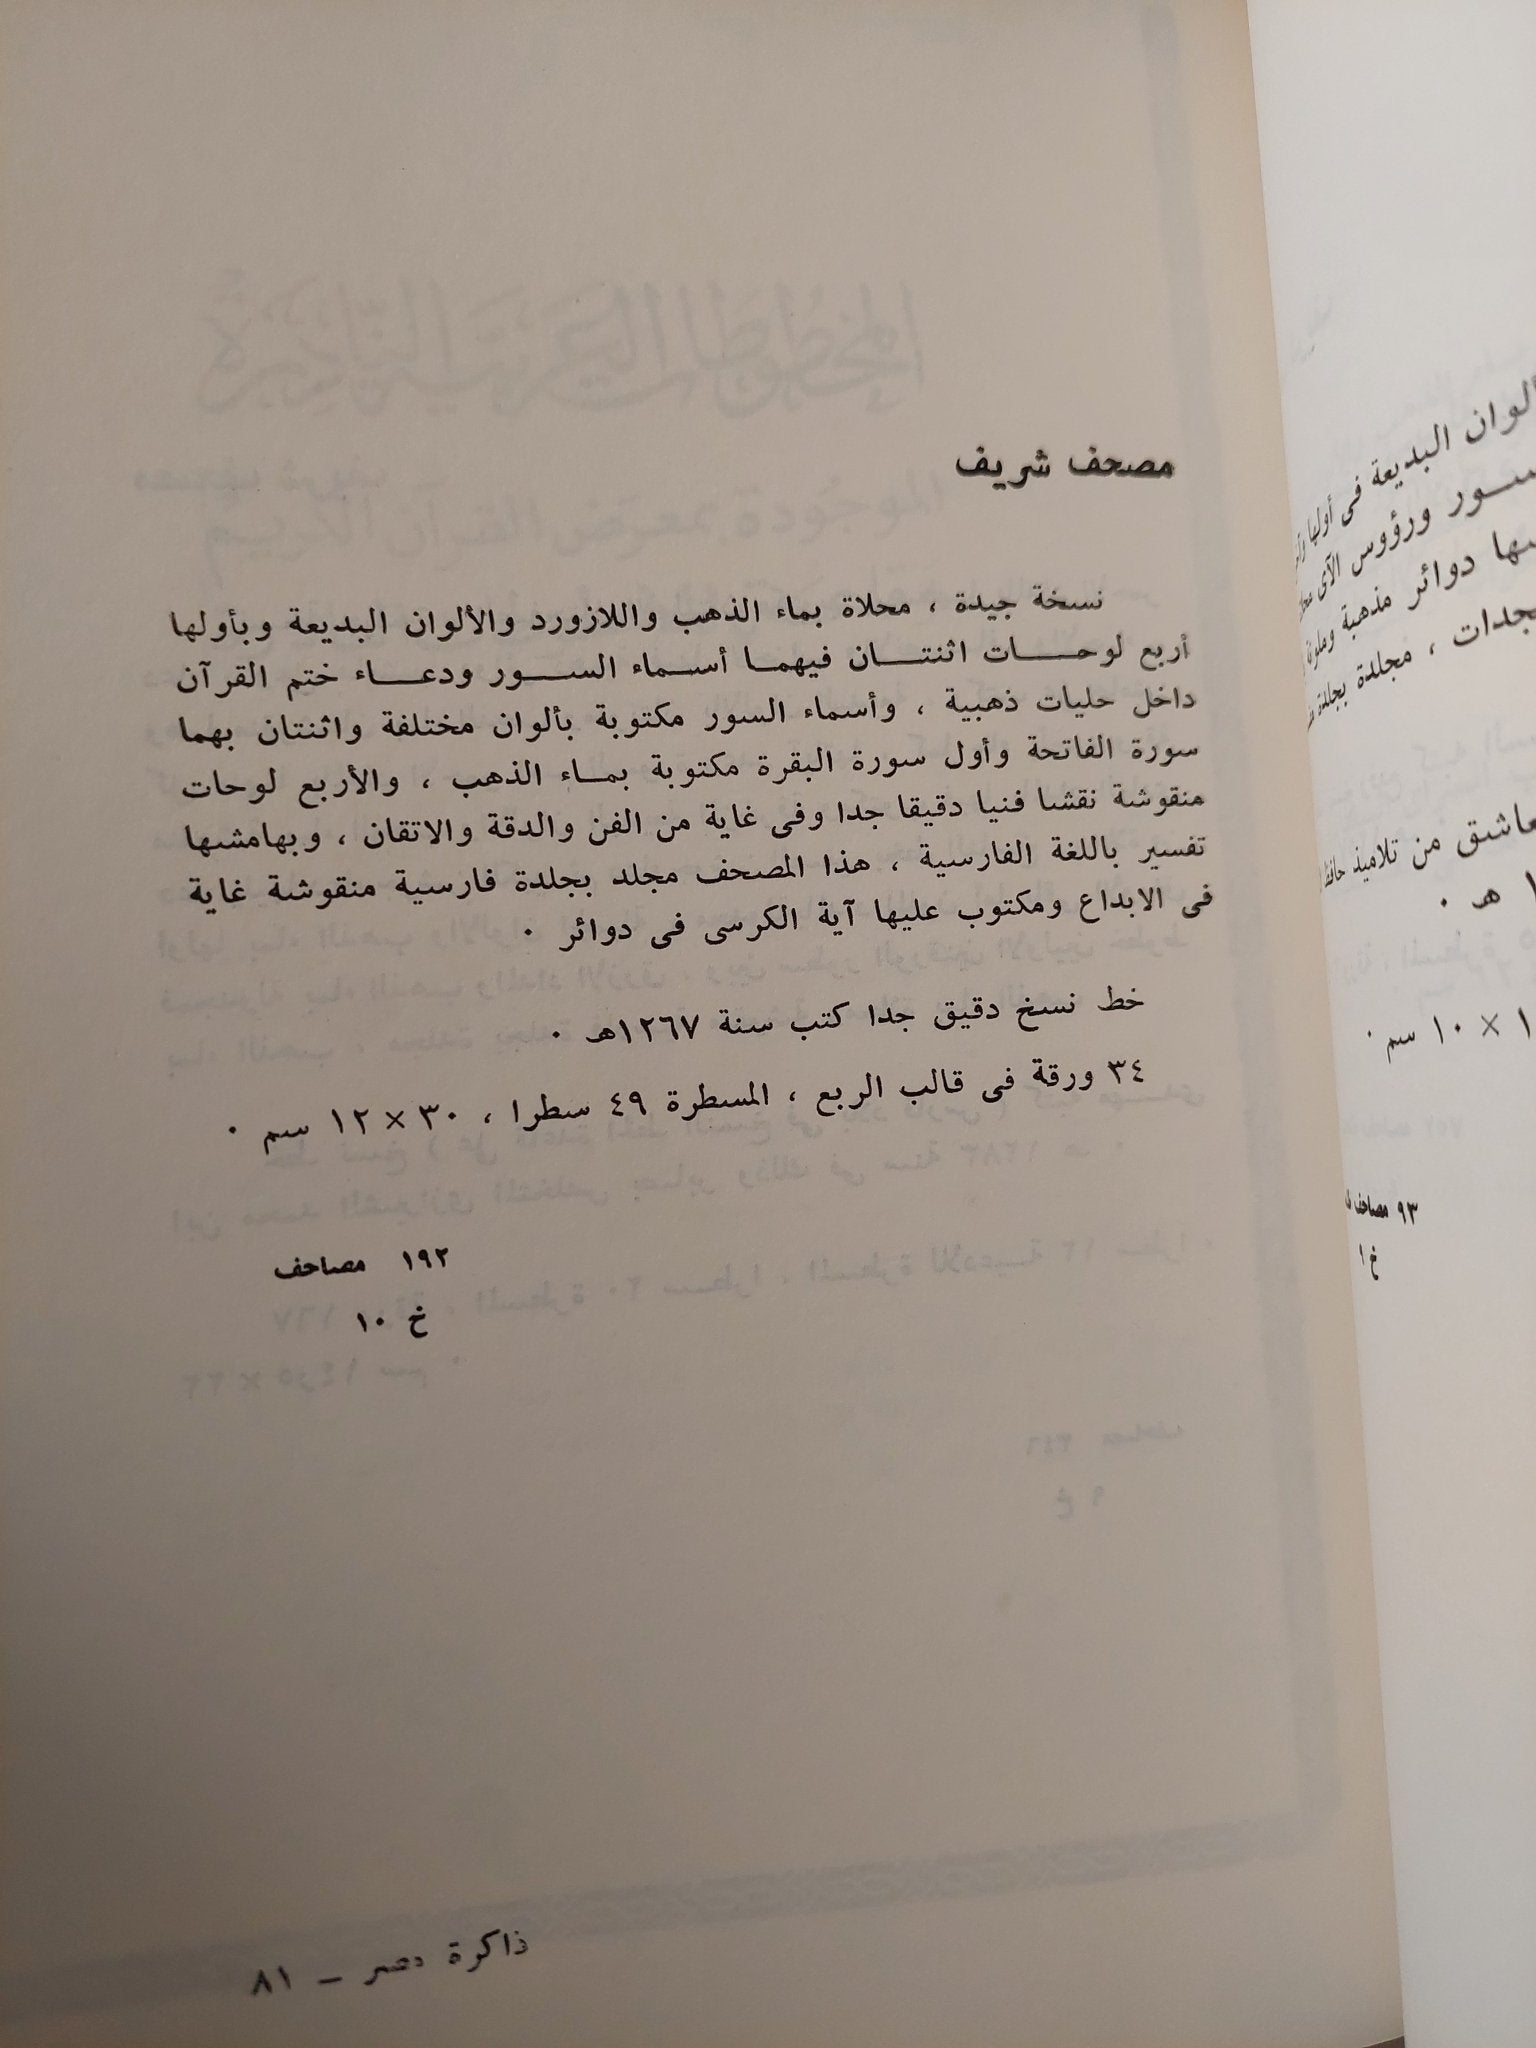 مصحف شريف
نسخة جيدة ، محلاة بماء الذهب واللازورد والألوان البديعة وبأولها
أربع لوحـــات اثنتـــان فيهمـا أسـماء الســـور ودعـــاء ختم القرآن
داخل حليات ذهبية ، وأسماء السور مكتوبة بألوان مختلفة واثنتان بهما
سورة الفاتحة وأول سورة البقرة مكتوبة بمـاء الذهب ، والأربع لوحات
منقوشة نقشا فنيا دقيقا جدا وفى غاية من الفن والدقة والاتقان ، وبهامشها
تفسير باللغة الفارسية ، هذا المصحف مجلد بجلدة فارسية منقوشة غاية
فى الابداع ومكتوب عليها آية الكرسى فى دوائر ٠
خط نسخ دقيق جدا كتب سنة ١٢٦٧هـ ٠
٣٤ ورقة فى قالب الربع ، المسطرة ٤٩ سطرا ، ٣٠ × ١٢ سم ٠
١٩٢ مصاحف
خ ١٠
ذاكرة مصر – ٨١
الوان البديعة فى أولها
ـســور ورؤوس الآى
ـها دوائر مذهبة
ـجدات ، مجلدة بجلدة
عاشق من تلاميذ
هـ ٠
× ١٠ سم ٠
٩٣ مصاحف
خ ١